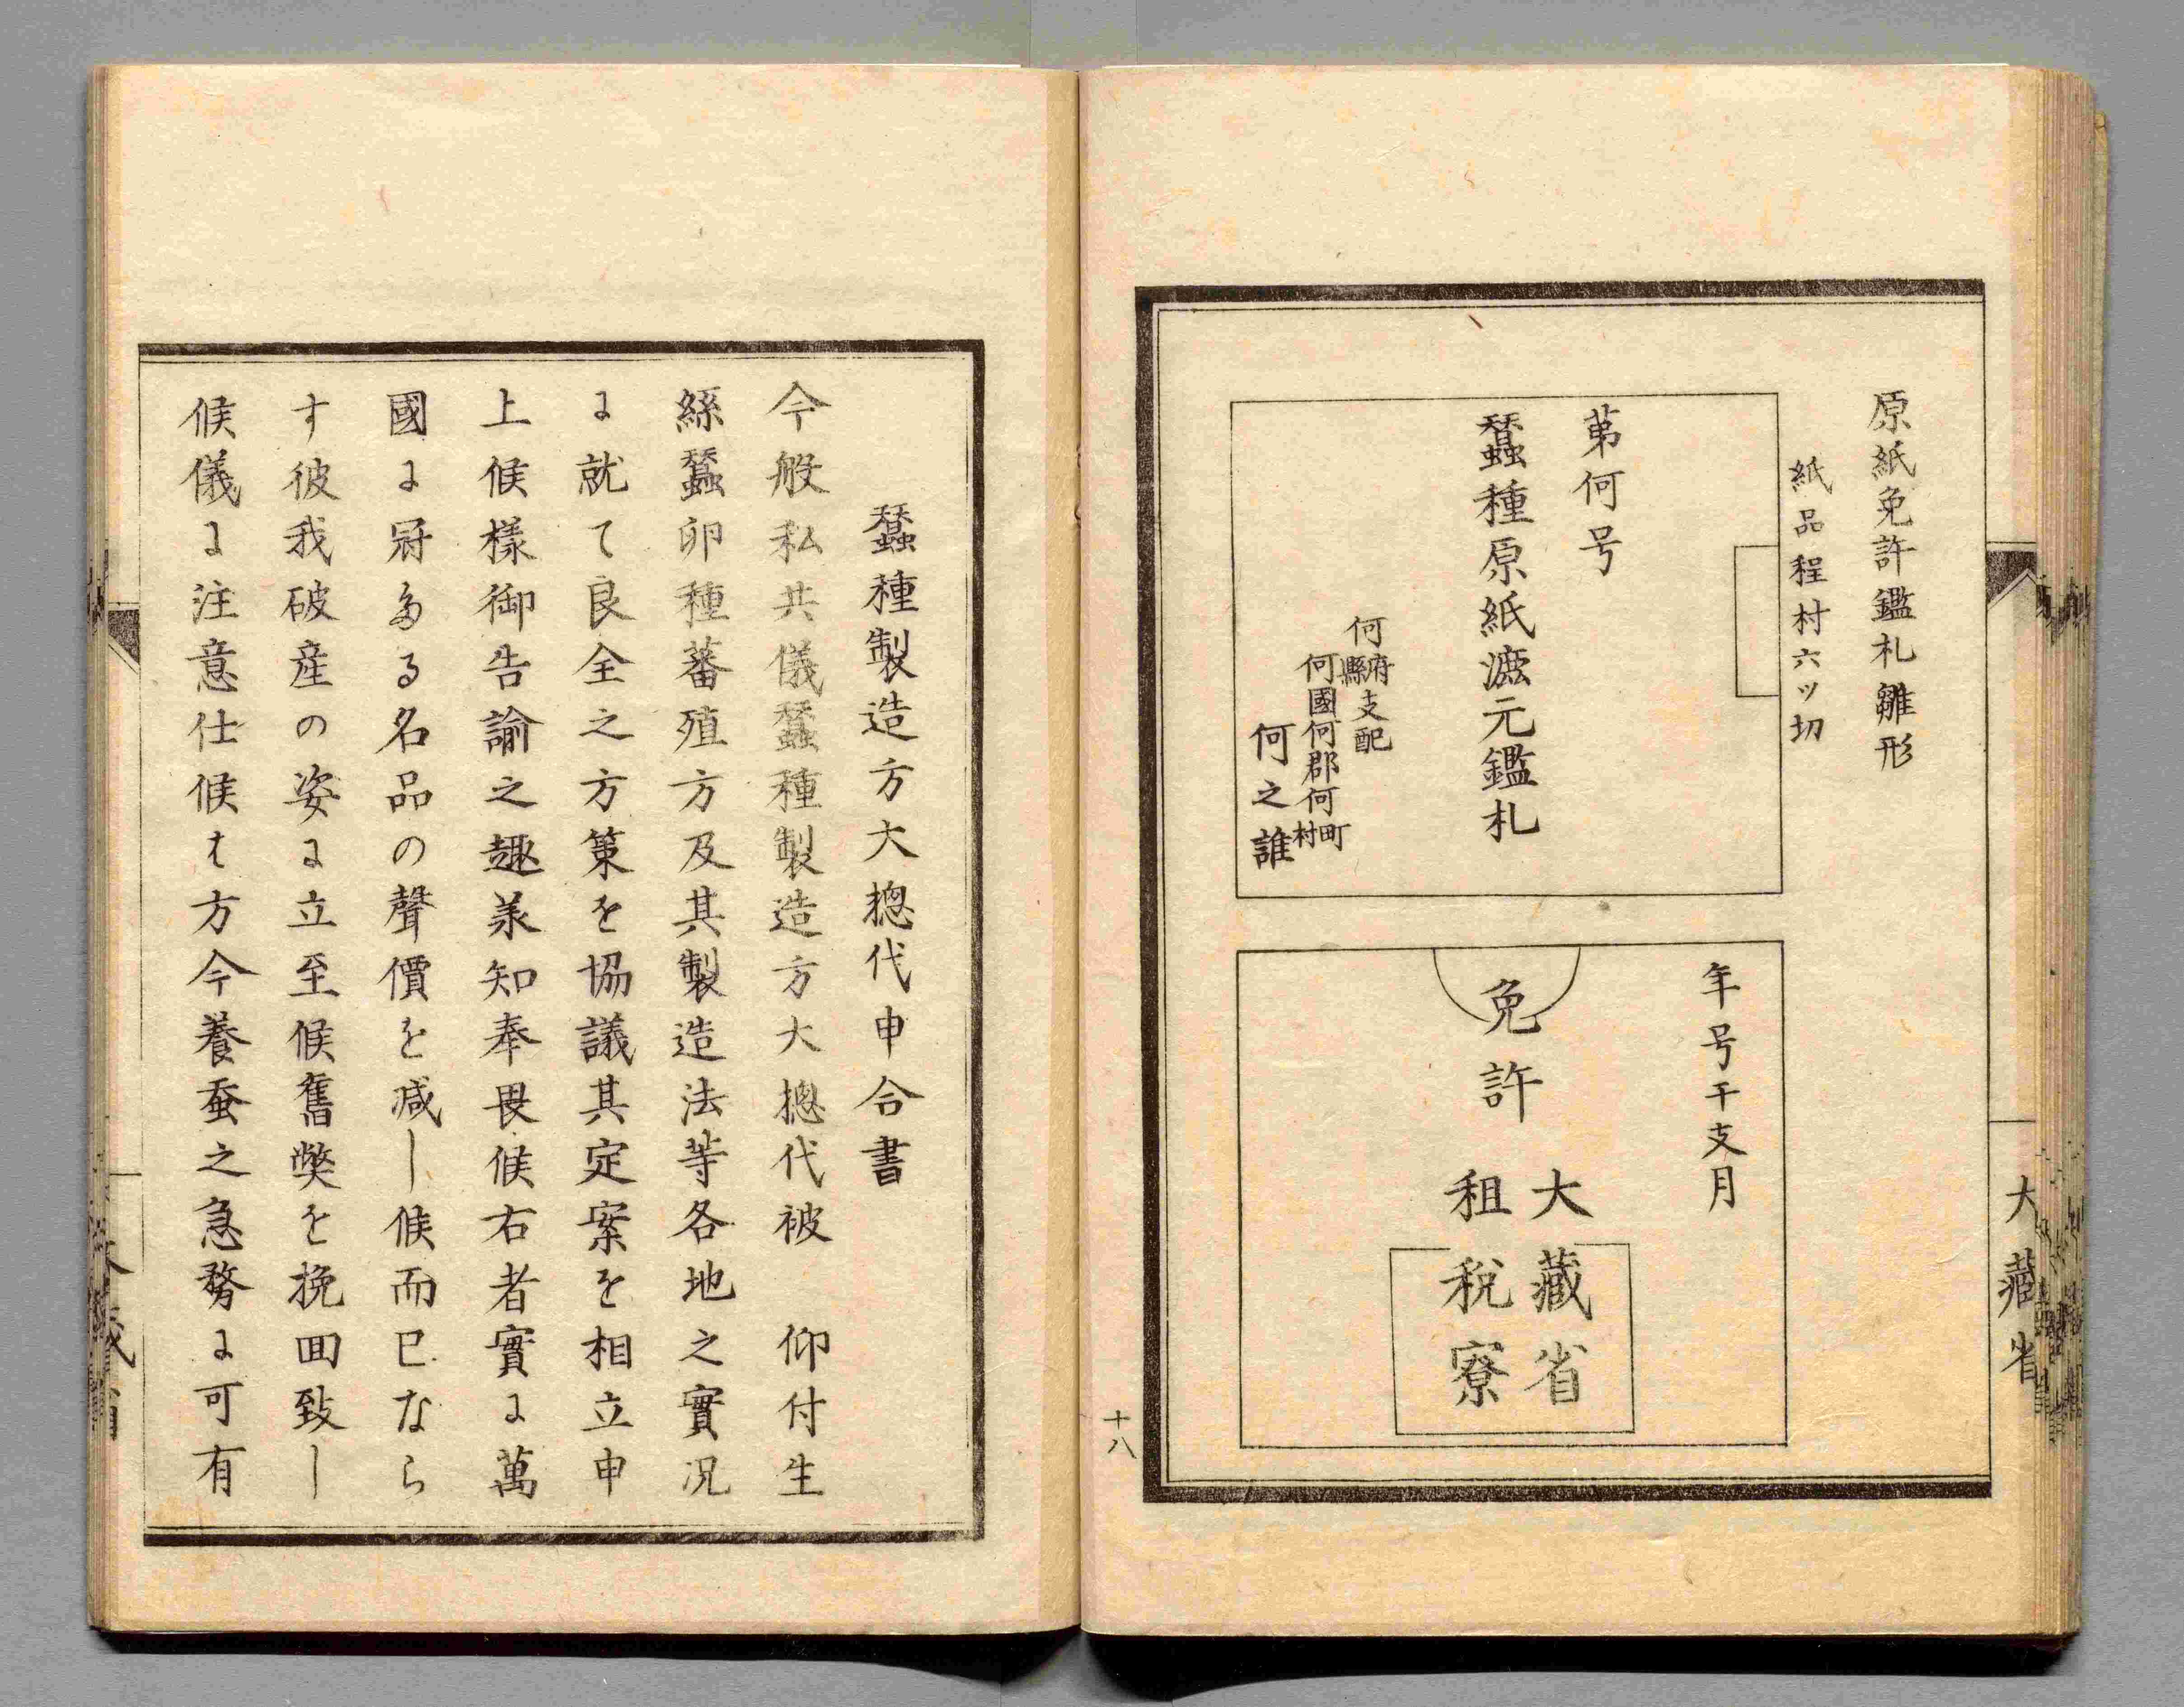 原紙免許鑑札雛形
紙品程村六ッ切
第何号
蠶種原紙漉元鑑札
何府縣支配
何國何郡何町村
何之誰
年号干支月
免許
大藏省
租税寮
大藏省
十八
蠶種製造方大摠代申合書
今般私共儀蠶種製造方大摠代被　仰付生
絲蠶卵種蕃殖方及其製造法等各地之實況
に就て良全之方策を協議其定案を相立申
上候様御告諭之趣羕知奉畏候右者實に萬
國に冠たる名品の聲價を减し候而已なら
す彼我破産の姿に立至候舊獘を挽回致し
候儀に注意仕候は方今養蚕之急務に可有